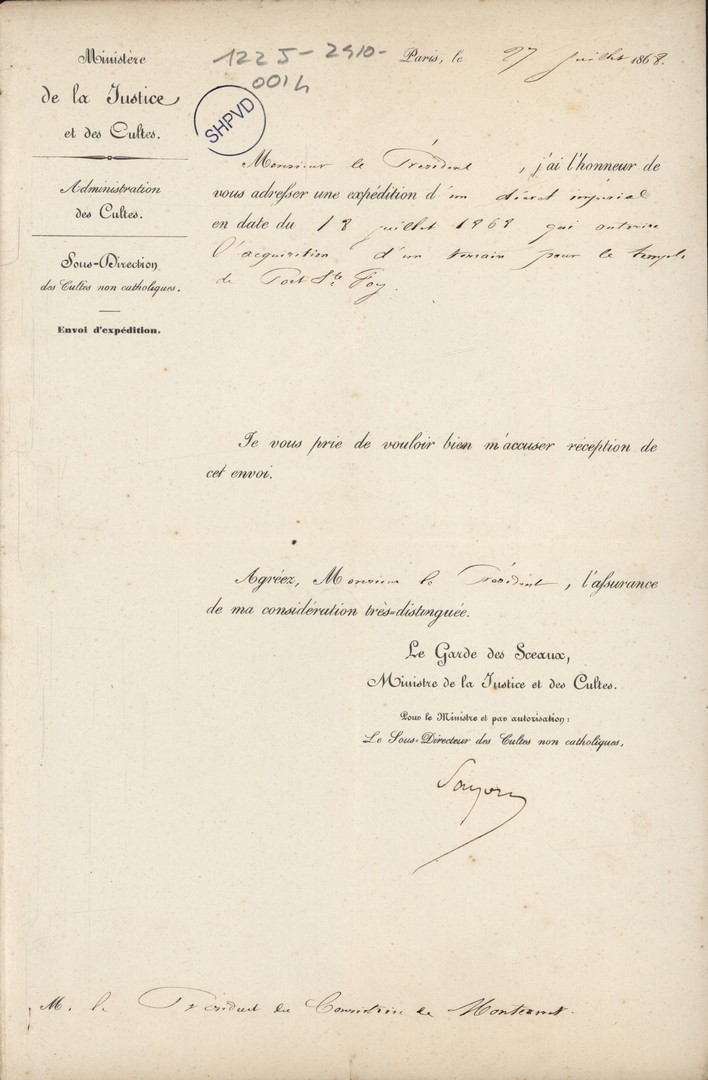 Ministère
de la Justice
et des Cultes.
Administration
des Cultes.
Sous-Direction
des Cultes non catholiques.
Envoi d'expédition.
1225-2910-
0014
SHPVD
Paris, le 27 juillet 1868.
Monsieur le Président, j'ai l'honneur de
vous adresser une expédition d'un décret impérial
en date du 18 juillet 1868 qui autorise
l'acquisition d'un terrain pour le temple
de Port Ste Foy.
Je vous prie de vouloir bien m'accuser réception de
cet envoi.
Agréez, Monsieur le Président, l'assurance
de ma considération très-distinguée.
Le Garde des Sceaux,
Ministre de la Justice et des Cultes.
Pour le Ministre et par autorisation:
Le Sous-Directeur des Cultes non catholiques,
M. le Président du Consistoire de Montcaret.